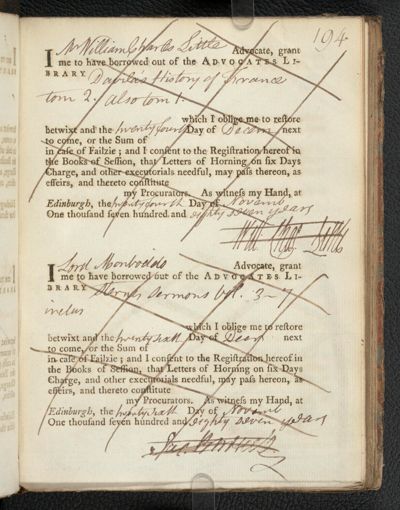 194
I Mr William Charles Little Advocate, grant
me to have borrowed out of the ADVOCATES LI-
BRARY Davila's History of France
tom 2. also tom 1.
which I oblige me to restore
betwixt and the twenty fourth Day of Decem next
to come, or the Sum of
in case of Failzie ; and I consent to the Registration hereof in
the Books of Session, that Letters of Horning on six Days
Charge, and other executorials needful, may pass thereon, as
effeirs, and thereto constitute
my Procurators. As witness my Hand, at
Edinburgh, the twenty fourth Day of Novemb
One thousand seven hundred and eighty seven years
Will Chas Little
I Lord Monboddo Advocate, grant
me to have borrowed out of the ADVOCATES LI-
BRARY Sterns sermons Vol. 3-7
inclus
which I oblige me to restore
betwixt and the twenty sixth Day of Decem next
to come, or the Sum of
in case of Failzie ; and I consent to the Registration hereof in
the Books of Session, that Letters of Horning on six Days
Charge, and other executorials needful, may pass hereon, as
effeirs, and thereto constitute
my Procurators. As witness my Hand, at
Edinburgh, the twenty sixth Day of Novemb
One thousand seven hundred and eighty seven years